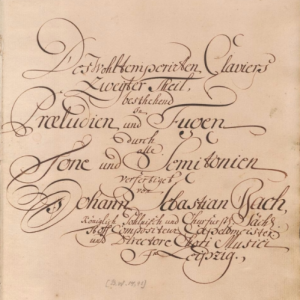 Des Wohltemperirten Claviers
Zweyter Theil,
besthehend
in
Præludien und Fugen
durch
alle
Tone und Semitonien
verfertiget
von
Johann Sebastian Bach,
Königlich Pohlnisch und Churfürstl. Sächs.
Hoff Compositeur Capellmeister
und Directore Chori Musici
In
Leipzig.